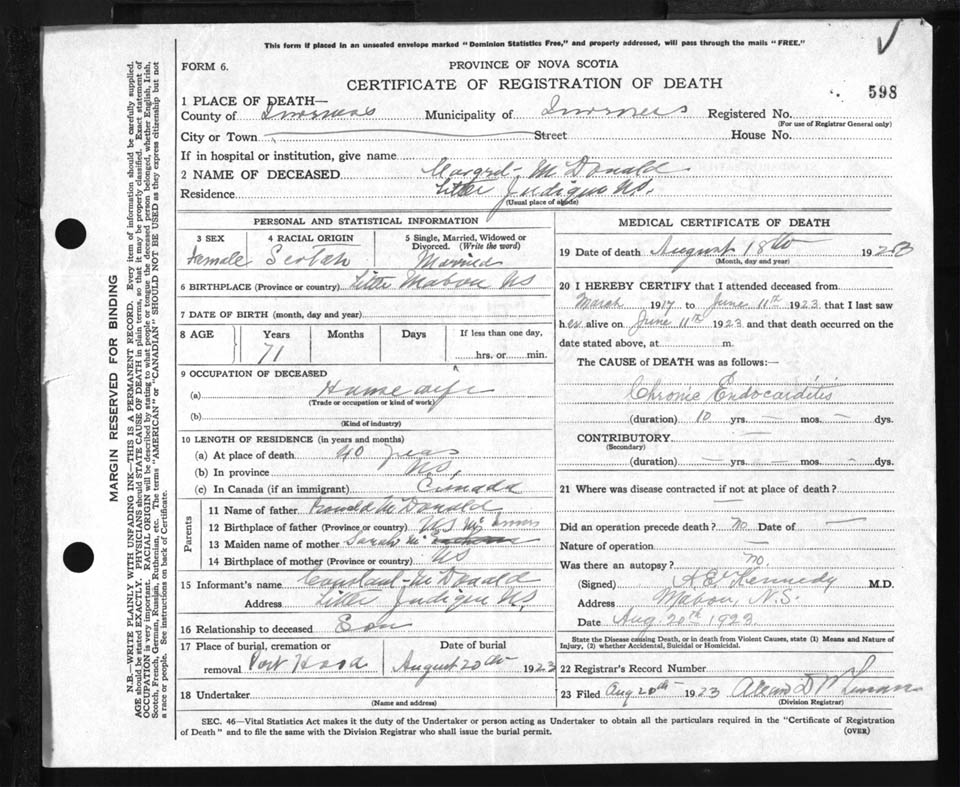 This form if placed in an unsealed envelope marked "Dominion Statistics Free," and properly addressed, will pass through the mails "FREE."
FORM 6.
PROVINCE OF NOVA SCOTIA
CERTIFICATE OF REGISTRATION OF DEATH
598
1 PLACE OF DEATH—
County of Inverness Municipality of Inverness Registered No.
(For use of Registrar General only)
City or Town Street House No.
If in hospital or institution, give name
2 NAME OF DECEASED Margret McDonald
Residence Little Judique NS.
(Usual place of abode)
PERSONAL AND STATISTICAL INFORMATION
3 SEX 4 RACIAL ORIGIN 5 Single, Married, Widowed or Divorced. (Write the word)
female Scotch Married
6 BIRTHPLACE (Province or country) Little Mabou NS
7 DATE OF BIRTH (month, day and year)
8 AGE Years Months Days If less than one day,
71 hrs. or min.
9 OCCUPATION OF DECEASED
(a) Housewife
(Trade or occupation or kind of work)
(b)
(Kind of industry)
10 LENGTH OF RESIDENCE (in years and months)
(a) At place of death 40 years
(b) In province NS,
(c) In Canada (if an immigrant) Canada
Parents
11 Name of father Ronald McDonald
12 Birthplace of father (Province or country) NS
13 Maiden name of mother Sarah Mc
14 Birthplace of mother (Province or country) NS
15 Informant's name McDonald
Address Little Judique NS,
16 Relationship to deceased Son
17 Place of burial, cremation or removal Port Hood
Date of burial August 20th 1923
18 Undertaker
(Name and address)
MEDICAL CERTIFICATE OF DEATH
19 Date of death August 18th 1923
(Month, day and year)
20 I HEREBY CERTIFY that I attended deceased from
March 1917 to June 11th 1923 that I last saw
her alive on June 11th 1923 and that death occurred on the
date stated above, at m.
The CAUSE of DEATH was as follows:—
Chronic Endocarditis
(duration) 10 yrs. — mos. — dys.
CONTRIBUTORY —
(Secondary)
(duration) — yrs. — mos. — dys.
21 Where was disease contracted if not at place of death?
—
Did an operation precede death? no Date of —
Nature of operation —
Was there an autopsy? no.
(Signed) Kennedy M.D.
Address Mabou, N.S.
Date Aug. 20th 1923
State the Disease causing Death, or in death from Violent Causes, state (1) Means and Nature of
Injury, (2) whether Accidental, Suicidal or Homicidal.
22 Registrar's Record Number
23 Filed Aug 20th 1923
(Division Registrar)
SEC. 46—Vital Statistics Act makes it the duty of the Undertaker or person acting as Undertaker to obtain all the particulars required in the "Certificate of Registration
of Death" and to file the same with the Division Registrar who shall issue the burial permit.
(OVER)
MARGIN RESERVED FOR BINDING
N.B.—WRITE PLAINLY WITH UNFADING INK—THIS IS A PERMANENT RECORD. Every item of information should be carefully supplied.
AGE should be stated EXACTLY. PHYSICIANS should STATE CAUSE OF DEATH in plain terms, so that it may be properly classified. Exact statement of
OCCUPATION is very important. RACIAL ORIGIN will be described by stating to what people or tongue the deceased person belonged, whether English, Irish,
Scotch, French, German, Russian, Ruthenian, etc. The terms "AMERICAN" or "CANADIAN" SHOULD NOT BE USED as they express citizenship but not
a race or people. See instructions on back of Certificate.